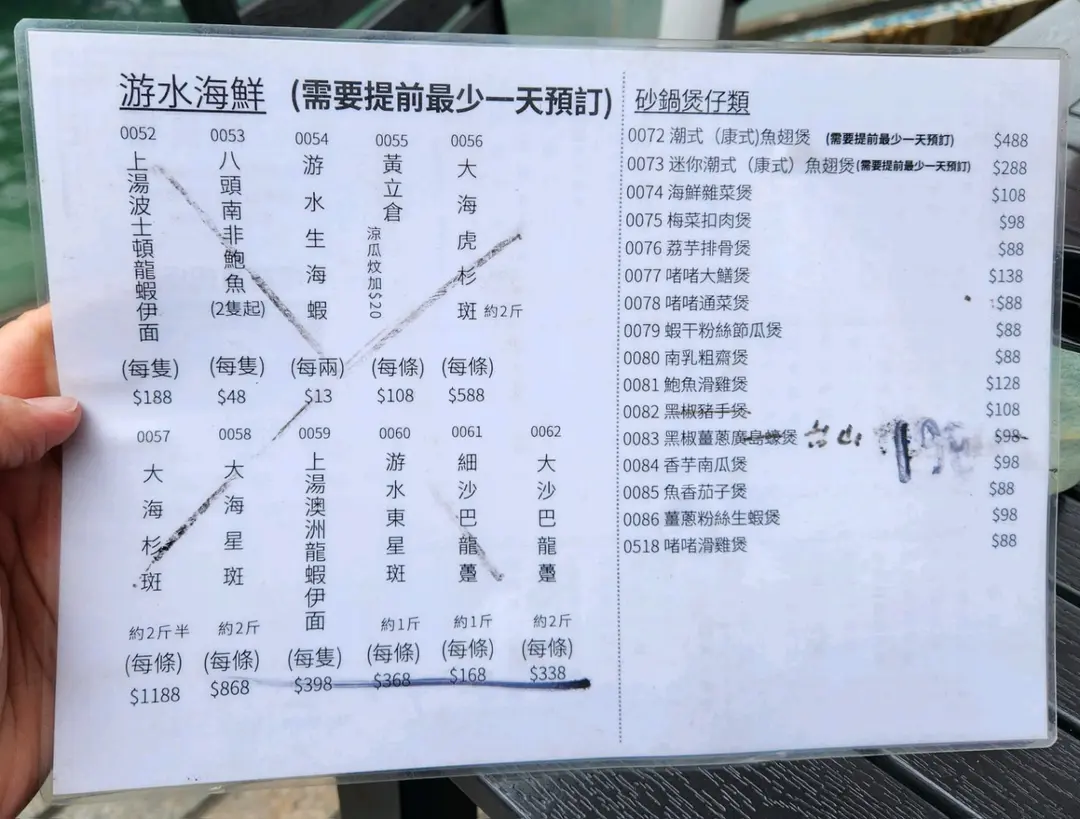 游水海鮮 (需要提前最少一天預訂)
0052
上湯波士頓龍蝦伊面
(每隻)
$188
0053
八頭南非鮑魚
(2隻起)
(每隻)
$48
0054
游水生海蝦
(每兩)
$13
0055
黃立倉
涼瓜炆加$20
(每條)
$108
0056
大海虎杉斑 約2斤
(每條)
$588
0057
大海杉斑
約2斤半
(每條)
$1188
0058
大海星斑
約2斤
(每條)
$868
0059
上湯澳洲龍蝦伊面
(每隻)
$398
0060
游水東星斑
約1斤
(每條)
$368
0061
細沙巴龍躉
約1斤
(每條)
$168
0062
大沙巴龍躉
約2斤
(每條)
$338
砂鍋煲仔類
0072 潮式（康式)魚翅煲 (需要提前最少一天預訂) $488
0073 迷你潮式（康式）魚翅煲(需要提前最少一天預訂) $288
0074 海鮮雜菜煲 $108
0075 梅菜扣肉煲 $98
0076 荔芋排骨煲 $88
0077 啫啫大鱔煲 $138
0078 啫啫通菜煲 $88
0079 蝦干粉絲節瓜煲 $88
0080 南乳粗齋煲 $88
0081 鮑魚滑雞煲 $128
0082 黑椒豬手煲 $108
0083 黑椒薑蔥廣島蠔煲 $98
0084 香芋南瓜煲 $98
0085 魚香茄子煲 $88
0086 薑蔥粉絲生蝦煲 $98
0518 啫啫滑雞煲 $88